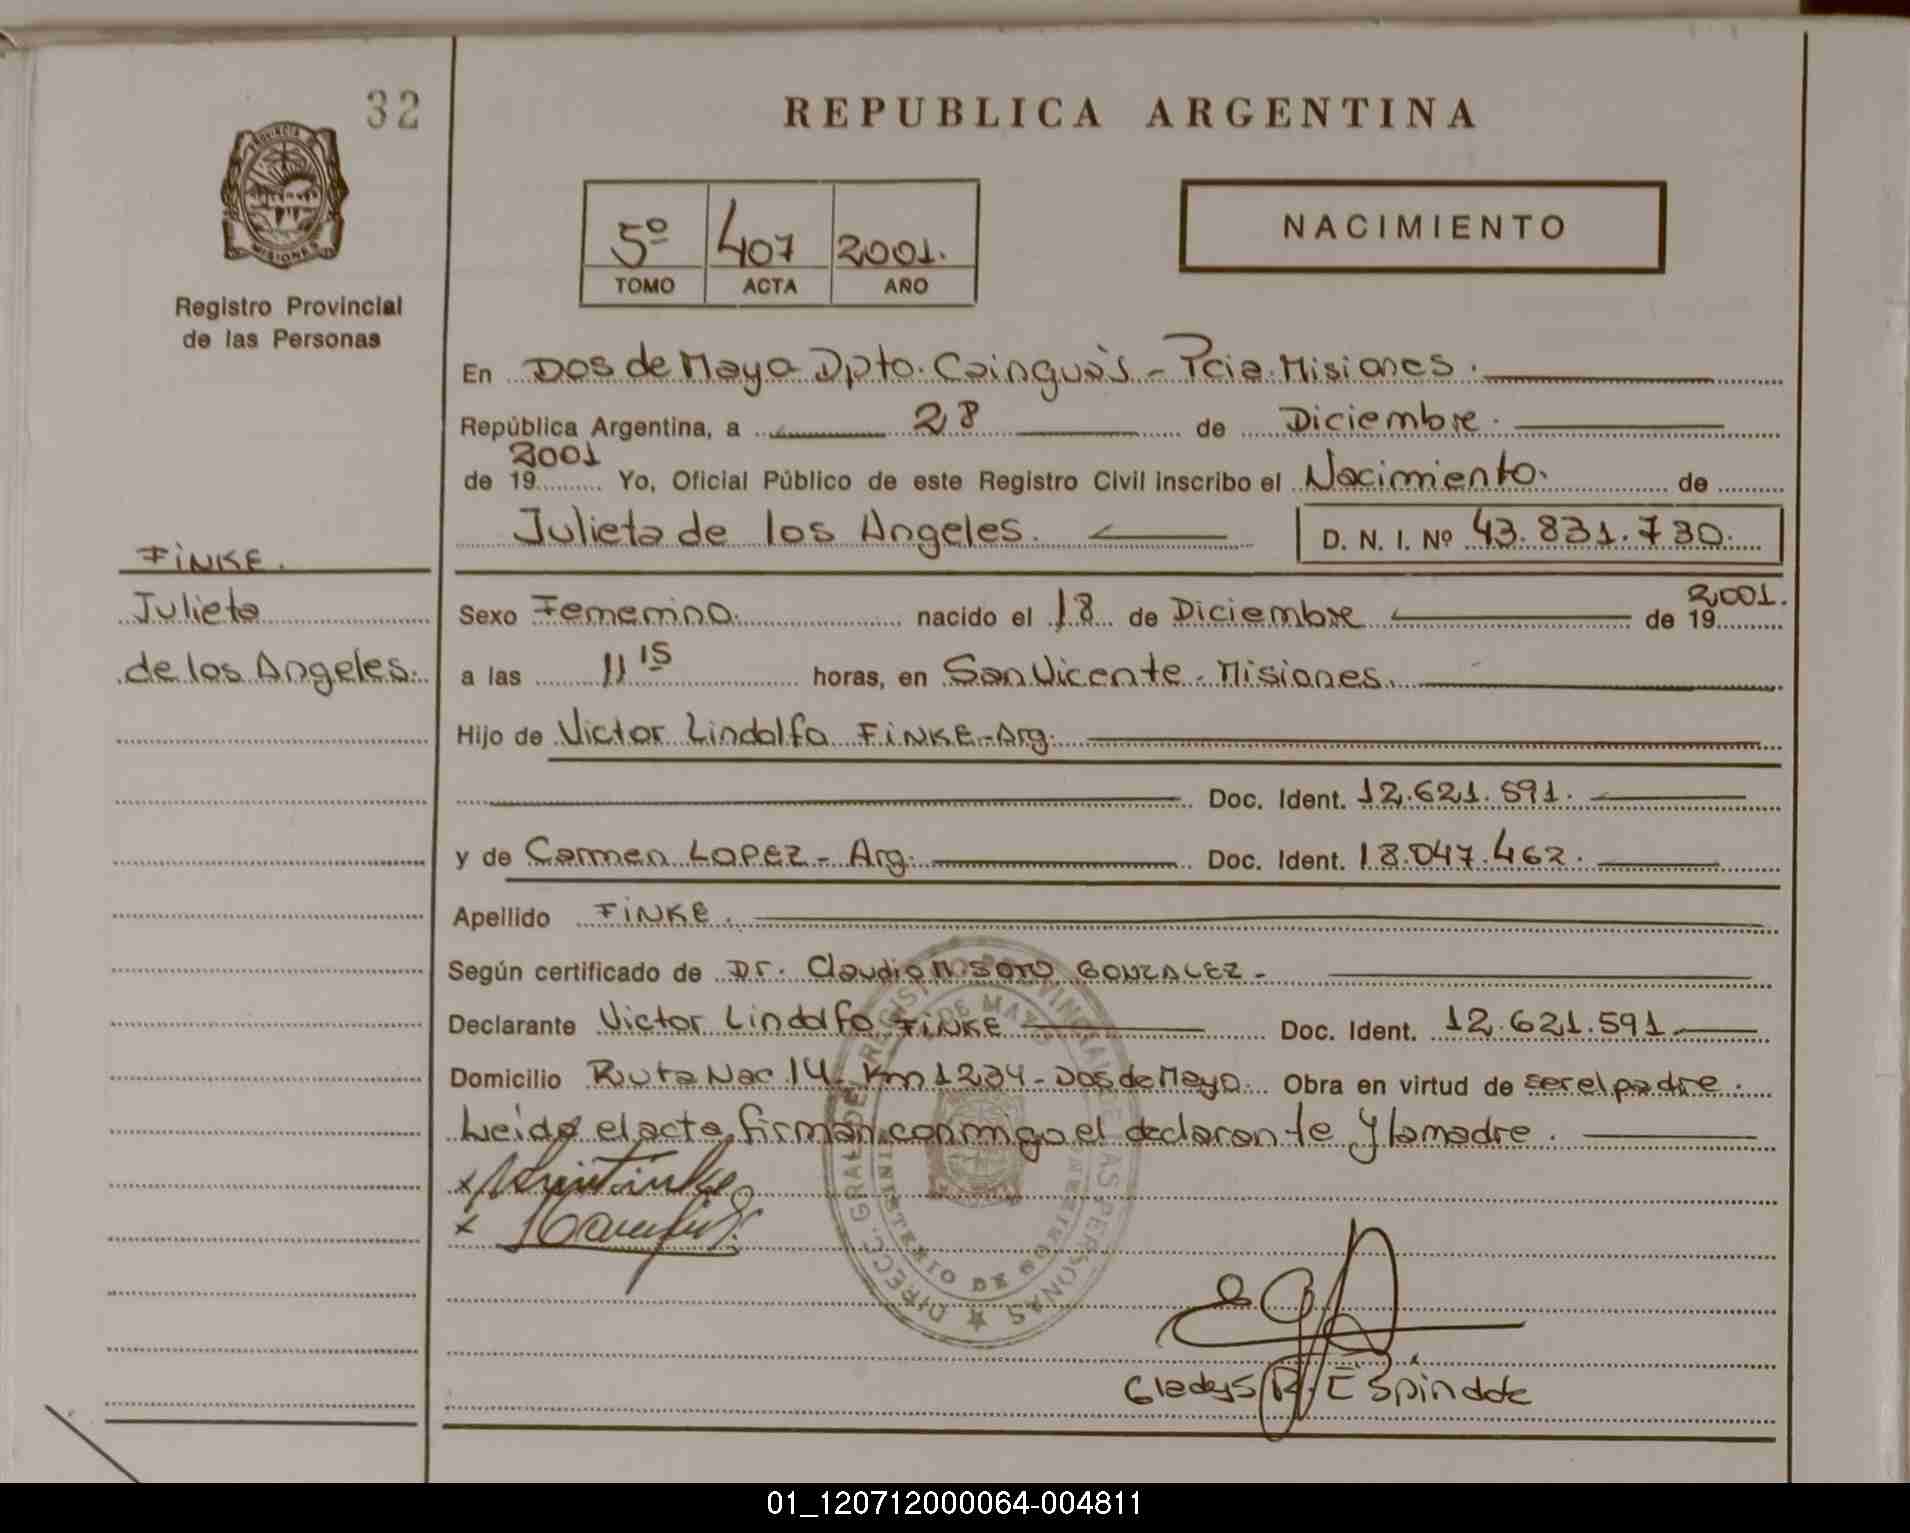 32
REPUBLICA ARGENTINA
PROVINCIA
MISIONES
Registro Provincial
de las Personas
5º 407 2001.
TOMO ACTA AÑO
NACIMIENTO
En Dos de Mayo Dpto. Cainguàs - Pcia. Misiones.
República Argentina, a 28 de Diciembre.
2001
de 19 Yo, Oficial Público de este Registro Civil inscribo el Nacimiento. de
Julieta de los Angeles. D. N. I. Nº 43.831.730.
FiNKE.
Julieta
de los Angeles.
2001.
Sexo Femenino. nacido el 18 de Diciembre de 19
a las 11 15 horas, en San Vicente - Misiones.
Hijo de Victor Lindolfo FiNKE - Arg.
Doc. Ident. 12.621.591.
y de Carmen LOPEZ - Arg. Doc. Ident. 18.047.462.
Apellido FiNKE.
Según certificado de Dr. Claudio N. GONZALEZ -
Declarante Victor Lindolfo FiNKE Doc. Ident. 12.621.591
Domicilio Ruta Nac 14 - Km 1234 - Dos de Mayo. Obra en virtud de ser el padre.
Leida el acta, firman conmigo el declarante y la madre.
x
x
DIRECC. GRAL. DEL REGISTRO PROVINCIAL DE LAS PERSONAS
2 DE MAYO
MINISTERIO DE GOBIERNO
Gladys R. Espindola
01_120712000064-004811